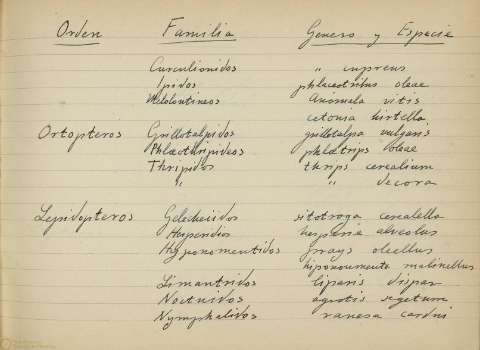 Orden Familia Genero y Especie
Curculionidos " cupreus
Ipidos phlaeotribus oleae
Melolontineos Anomala vitis
cetonia hirtella
Ortopteros Grillotalpidos grillotalpa vulgaris
Phlaeothripideos phlaetrips oleae
Thripidos thrips cerealium
" " decora
Lepidopteros Gelechiidos sitotroga cerealella
Hesperidos hesperia alveolus
Hyponomentidos prays oleellus
hiponoumenta malinellus
Limantridos liparis dispar
Noctuidos agrotis segetum
Nymphalidos vanesa cardui